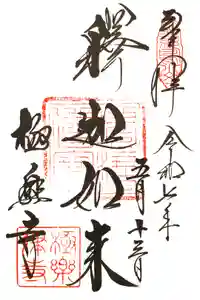 奉拝
令和七年
五月十三日
釋迦如来
極楽寺